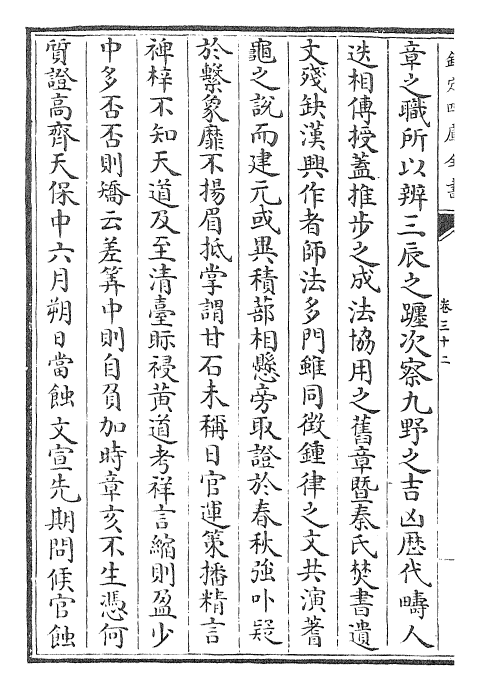 欽定四庫全書
卷三十二
章之職所以辨三辰之躔次察九野之吉凶歴代疇人
迭相傳授蓋推步之成法協用之舊章暨秦氏焚書遺
文殘缺漢興作者師法多門雖同徴鍾律之文共演蓍
龜之說而建元或異積蔀相懸旁取證於春秋強叶疑
於繫象靡不揚眉抵掌謂甘石未稱日官運䇿播精言
禆梓不知天道及至清臺眎祲黄道考祥言縮則盈少
中多否否則矯云差筭中則自負加時章亥不生憑何
質證高齊天保中六月朔日當蝕文宣先期問候官蝕